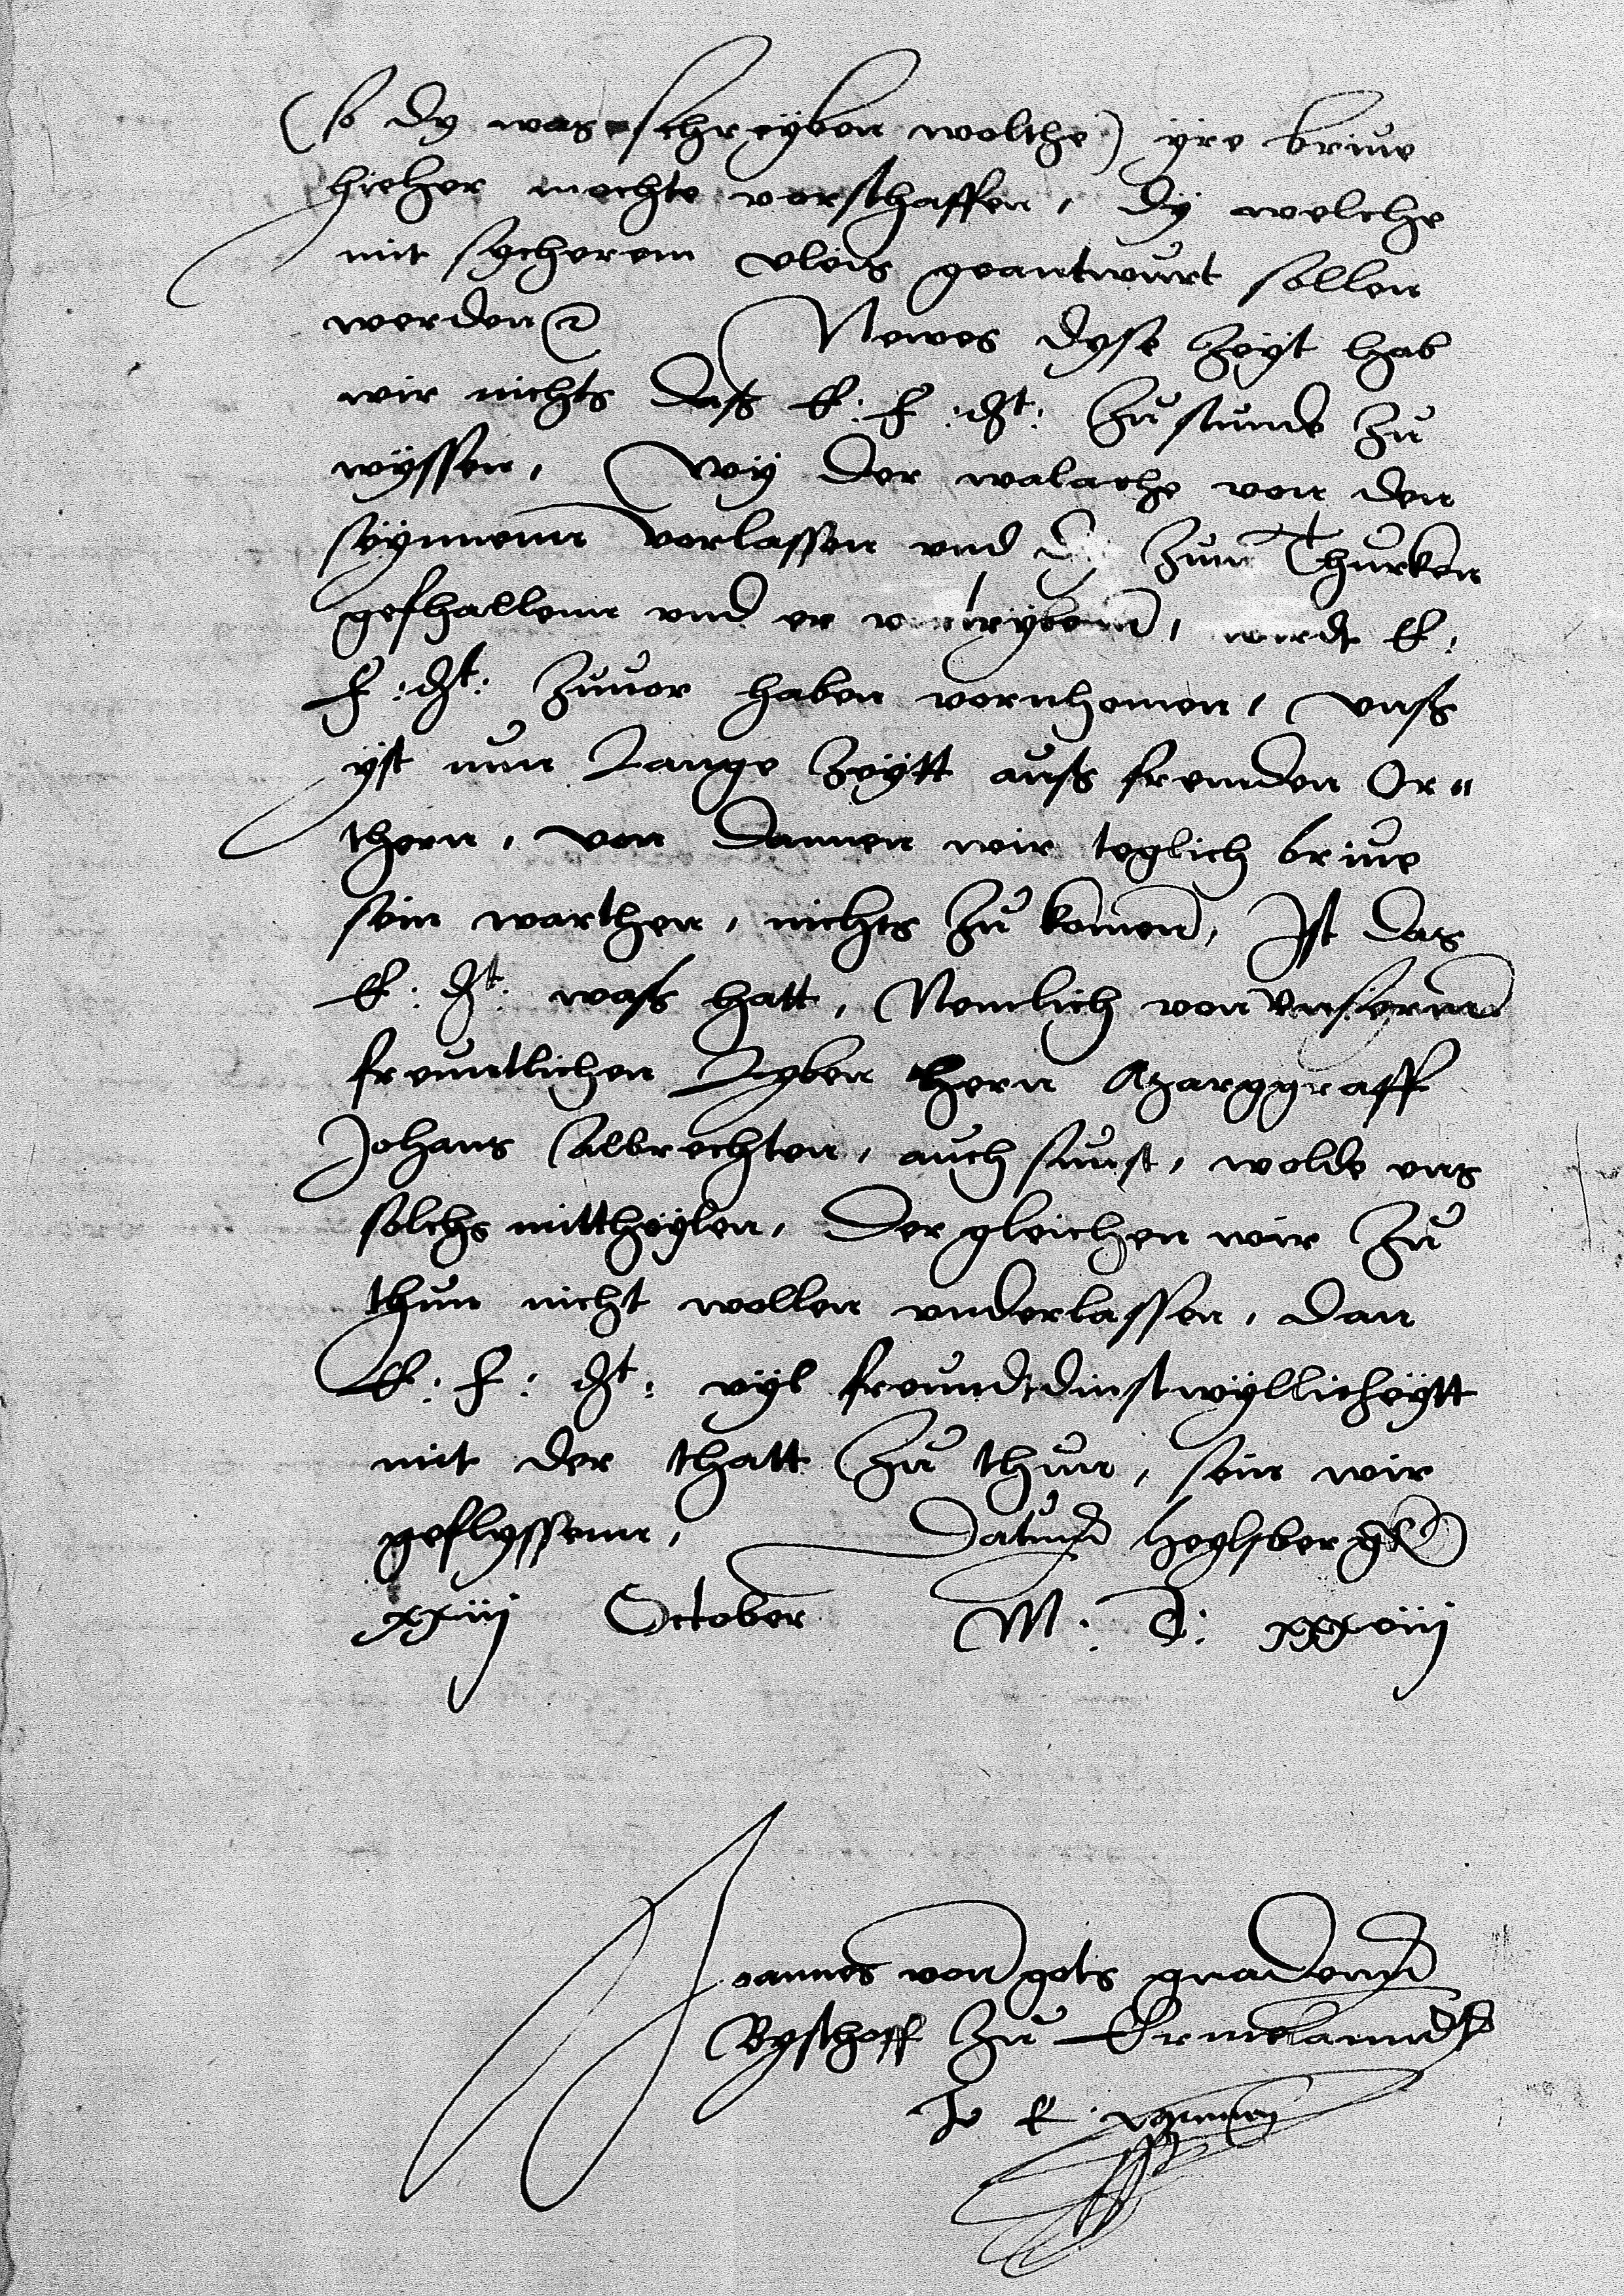 (so dy was schreyben wolthe) yre brive
hieher mochte vorschaffen, dy welche
mit sycherem vleis geantwurt sollen
werden etc. Newes dyse zeyt hab
wir nichts daß E: F: Dt: zustunde zu
wyssen, Wy der walache von den
seynnenn vorlassen und zum Thurken
gefhallenn und er vertrybenn, wirdt E:
F: Dt: zuvor haben vornhomen, Unß
yst nun Lange zeytt auß fremden Or=
thern, von dannen wir teglich brive
sein warthen, nichts zu komen, Ist das
E: Dt: waß hatt, Nemlich von unserenn
freuntlichen Lyben hern Marggraff
Johans Albrechten, auch sunst, wolde uns
solchs mittheylen, Der gleichen wir zu
thun nicht wollen underlassen, dan
E: F: Dt: vyl freundtdinstwyllicheytt
mit der thatt zu thun, sein wir
geflyssenn, Datum heylsbergk
xxiij October M: D: xxxviij
Joannes von gots gnadenn
Bysthoff zu Ermelanndt